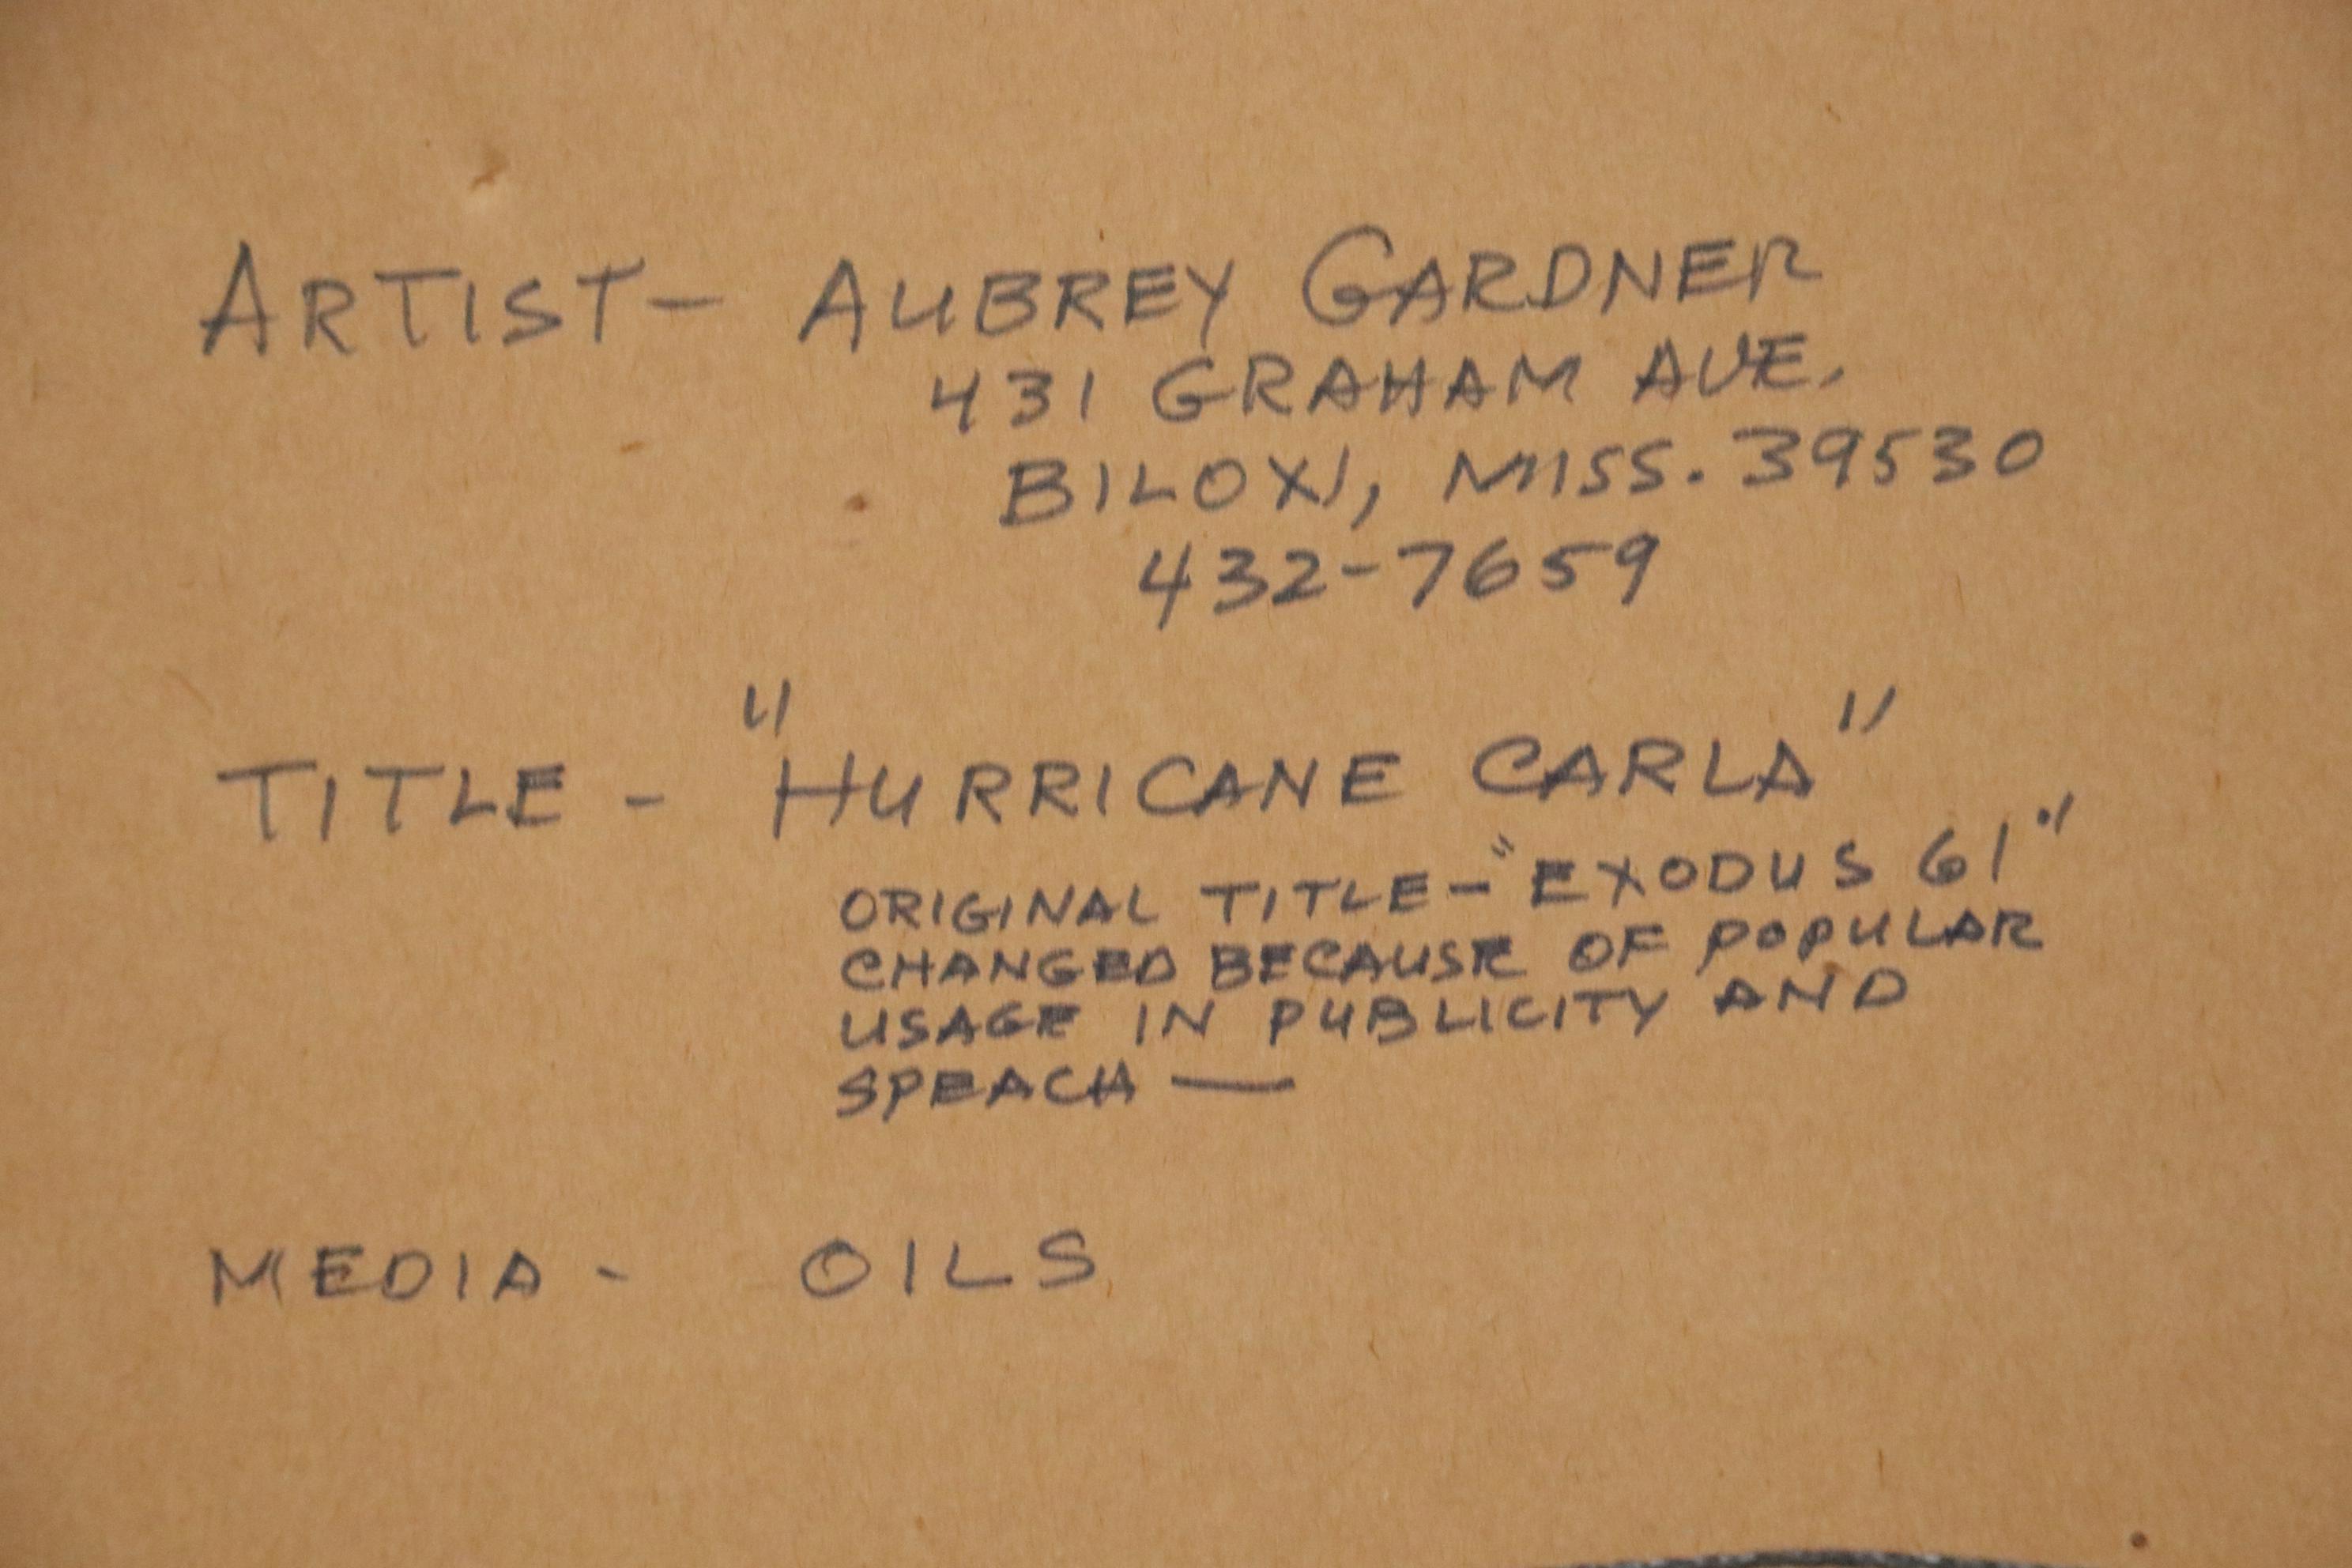 ARTIST- AUBREY GARDNER
431 GRAHAM AVE.
BILOXI, MISS. 39530
432-7659
TITLE - "HURRICANE CARLA"
ORIGINAL TITLE-"EXODUS 61"
CHANGED BECAUSE OF POPULAR
USAGE IN PUBLICITY AND
SPEACH —
MEDIA - OILS